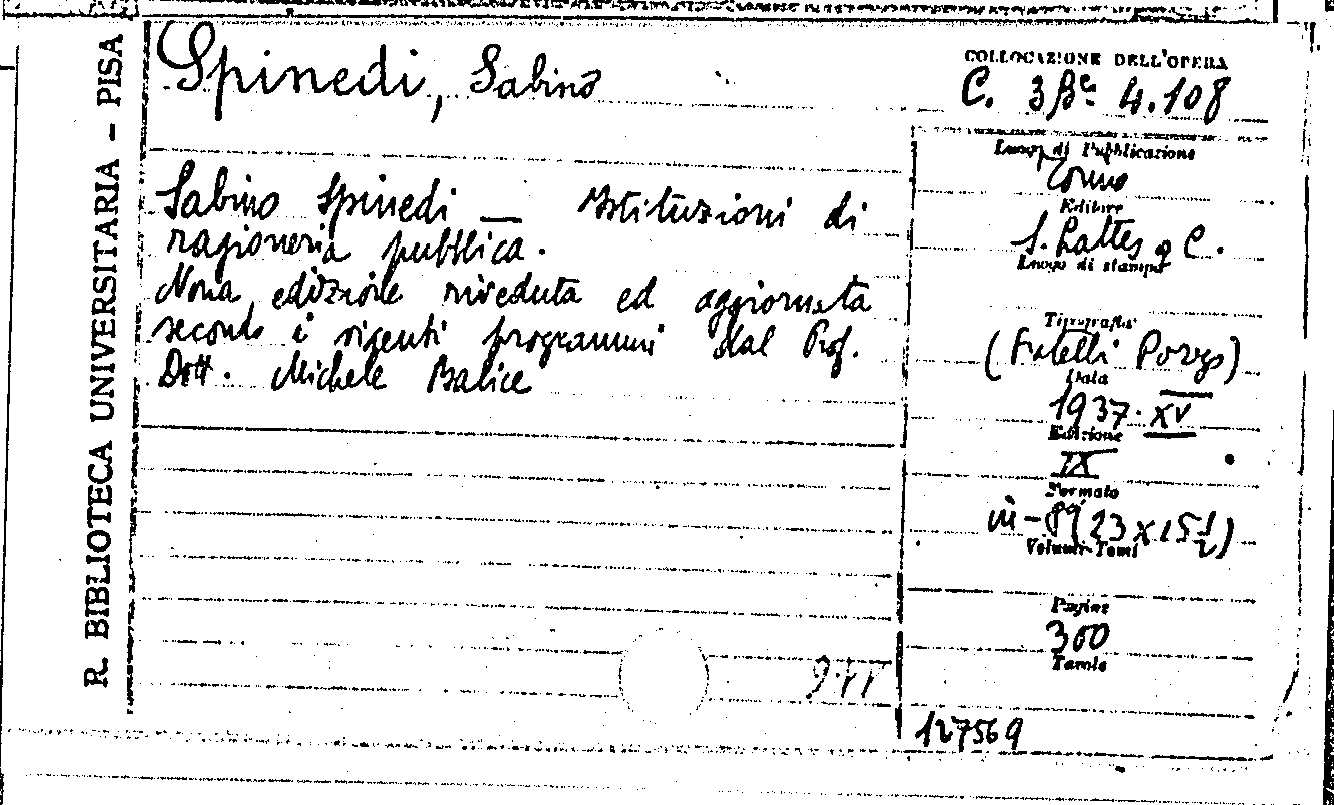 R. BIBLIOTECA UNIVERSITARIA - PISA
Spinedi, Sabino
COLLOCAZIONE DELL'OPERA
C. 3 4.108
Sabino Spinedi — Istituzioni di
ragioneria pubblica.
Nona edizione riveduta ed aggiornata
secondo i vigenti programmi dal Prof.
Dott. Michele Balice
Luogo di Pubblicazione
Torino
Editore
S. Lattes e C.
Luogo di stampa
Tipografia
(Fratelli Pozzo)
Data
1937. XV
Edizione
IX
Formato
in-8º (23 x 15 1/2)
Volumi-Tomi
Pagine
300
Tavole
127569